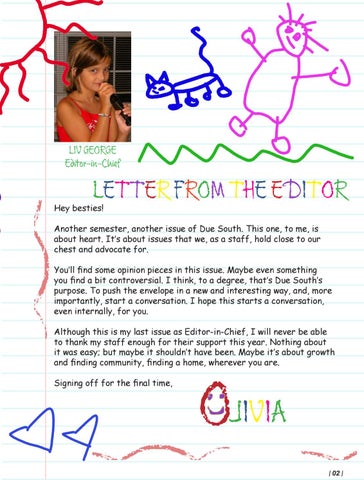 LIV GEORGE
Editor-in-Chief
LETTER FROM THE EDITOR
Hey besties!
Another semester, another issue of Due South. This one, to me, is
about heart. It's about issues that we, as a staff, hold close to our
chest and advocate for.
You'll find some opinion pieces in this issue. Maybe even something
you find a bit controversial. I think, to a degree, that's Due South's
purpose. To push the envelope in a new and interesting way, and, more
importantly, start a conversation. I hope this starts a conversation,
even internally, for you.
Although this is my last issue as Editor-in-Chief, I will never be able
to thank my staff enough for their support this year. Nothing about
it was easy; but maybe it shouldn't have been. Maybe it's about growth
and finding community, finding a home, wherever you are.
Signing off for the final time,
OLIVIA
| 02 |